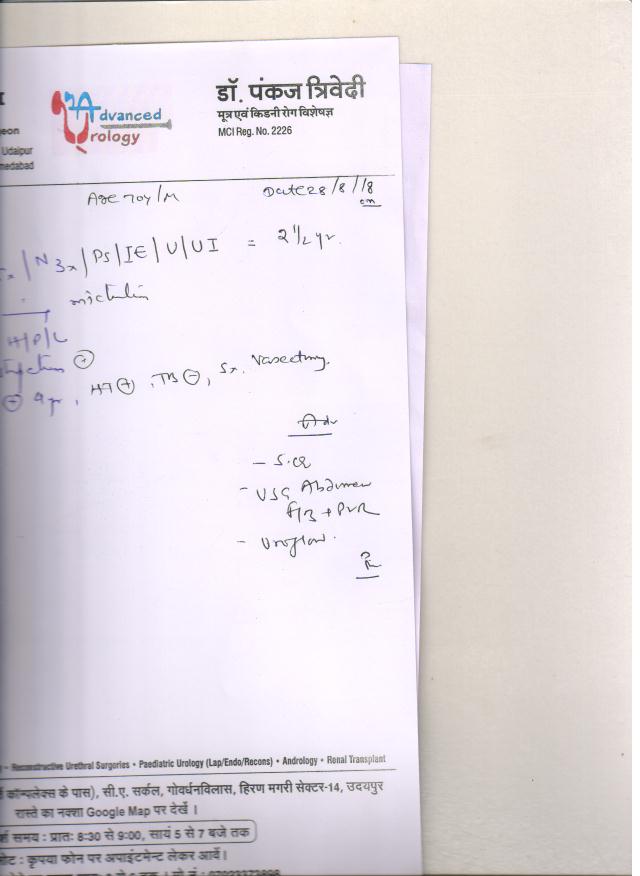 डॉ. पंकज त्रिवेदी
मूत्र एवं किडनी रोग विशेषज्ञ
MCI Reg. No. 2226
Advanced
Urology
eon
Udaipur
medabad
Age 70Y/M
Date 28/8/18
/N 3x/PS/IE/U/UI = 2 1/2 yr.
H/P/L
⊕
⊖ 9 yr, HT ⊕, TB ⊖, Sx. Vasectomy.
Adv
- S.CR
- USG Abdomen
+ PVR
- Uroflow.
- Reconstructive Urethral Surgories • Paediatric Urology (Lap/Endo/Recons) • Andrology • Renal Transplant
कॉम्पलेक्स के पास), सी.ए. सर्कल, गोवर्धनविलास, हिरण मगरी सेक्टर-14, उदयपुर
रास्ते का नक्शा Google Map पर देखें ।
समय : प्रातः 8:30 से 9:00, सायं 5 से 7 बजे तक
नोट : कृपया फोन पर अपाइंटमेन्ट लेकर आवें।